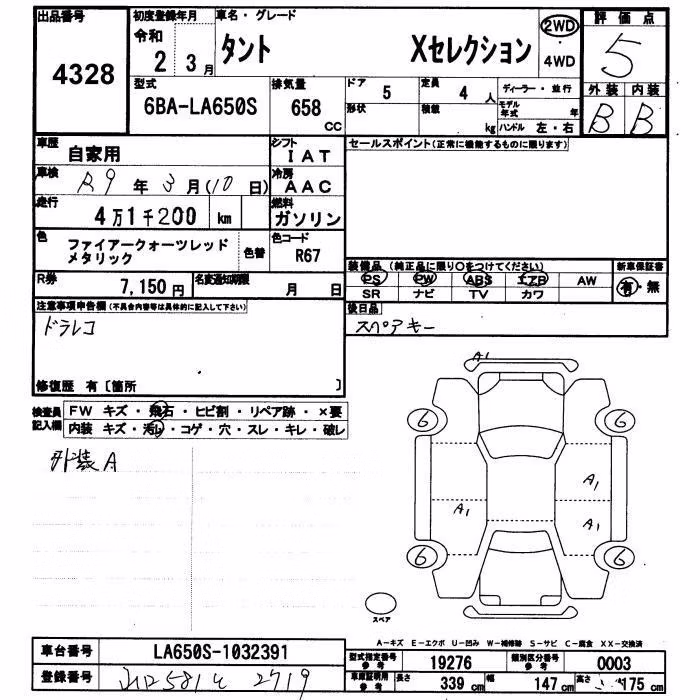 出品番号
4328
初度登録年月
令和
2 3月
車名・グレード
タント Xセレクション
2WD
4WD
評価点
5
型式
6BA-LA650S
排気量
658
CC
ドア
5
定員
4 人
ディーラー・並行
形状
積載
kg
モデル年式 年
ハンドル 左・右
外装 内装
B B
車歴
自家用
シフト
IAT
セールスポイント(正常に機能するものに限ります)
車検
R9 年 3 月(10 日)
冷房
AAC
走行
4万1千200 km
燃料
ガソリン
色
ファイアークォーツレッド
メタリック
色替
色コード
R67
装備品(純正品に限り○をつけてください)
新車保証書
PS PW ABS エアB AW
SR ナビ TV カワ
有・無
R券
7,150円
名変通知期限
月 日
注意事項申告欄(不具合内容等は具体的に記入して下さい)
ドラレコ
後日品
スペアキー
修復歴 有〔箇所 〕
検査員記入欄
FW キズ・飛石・ヒビ割・リペア跡・×要
内装 キズ・汚レ・コゲ・穴・スレ・キレ・破レ
外装A
A1
6 6
A1
A1 A1
6 6
スペア
A-キズ E-エクボ U-凹み W-補修跡 S-サビ C-腐食 XX-交換済
車台番号
LA650S-1032391
型式指定番号 参考
19276
類別区分番号 参考
0003
登録番号
2719
車庫証明用 参考
長さ 339 cm 幅 147 cm 高さ 175 cm